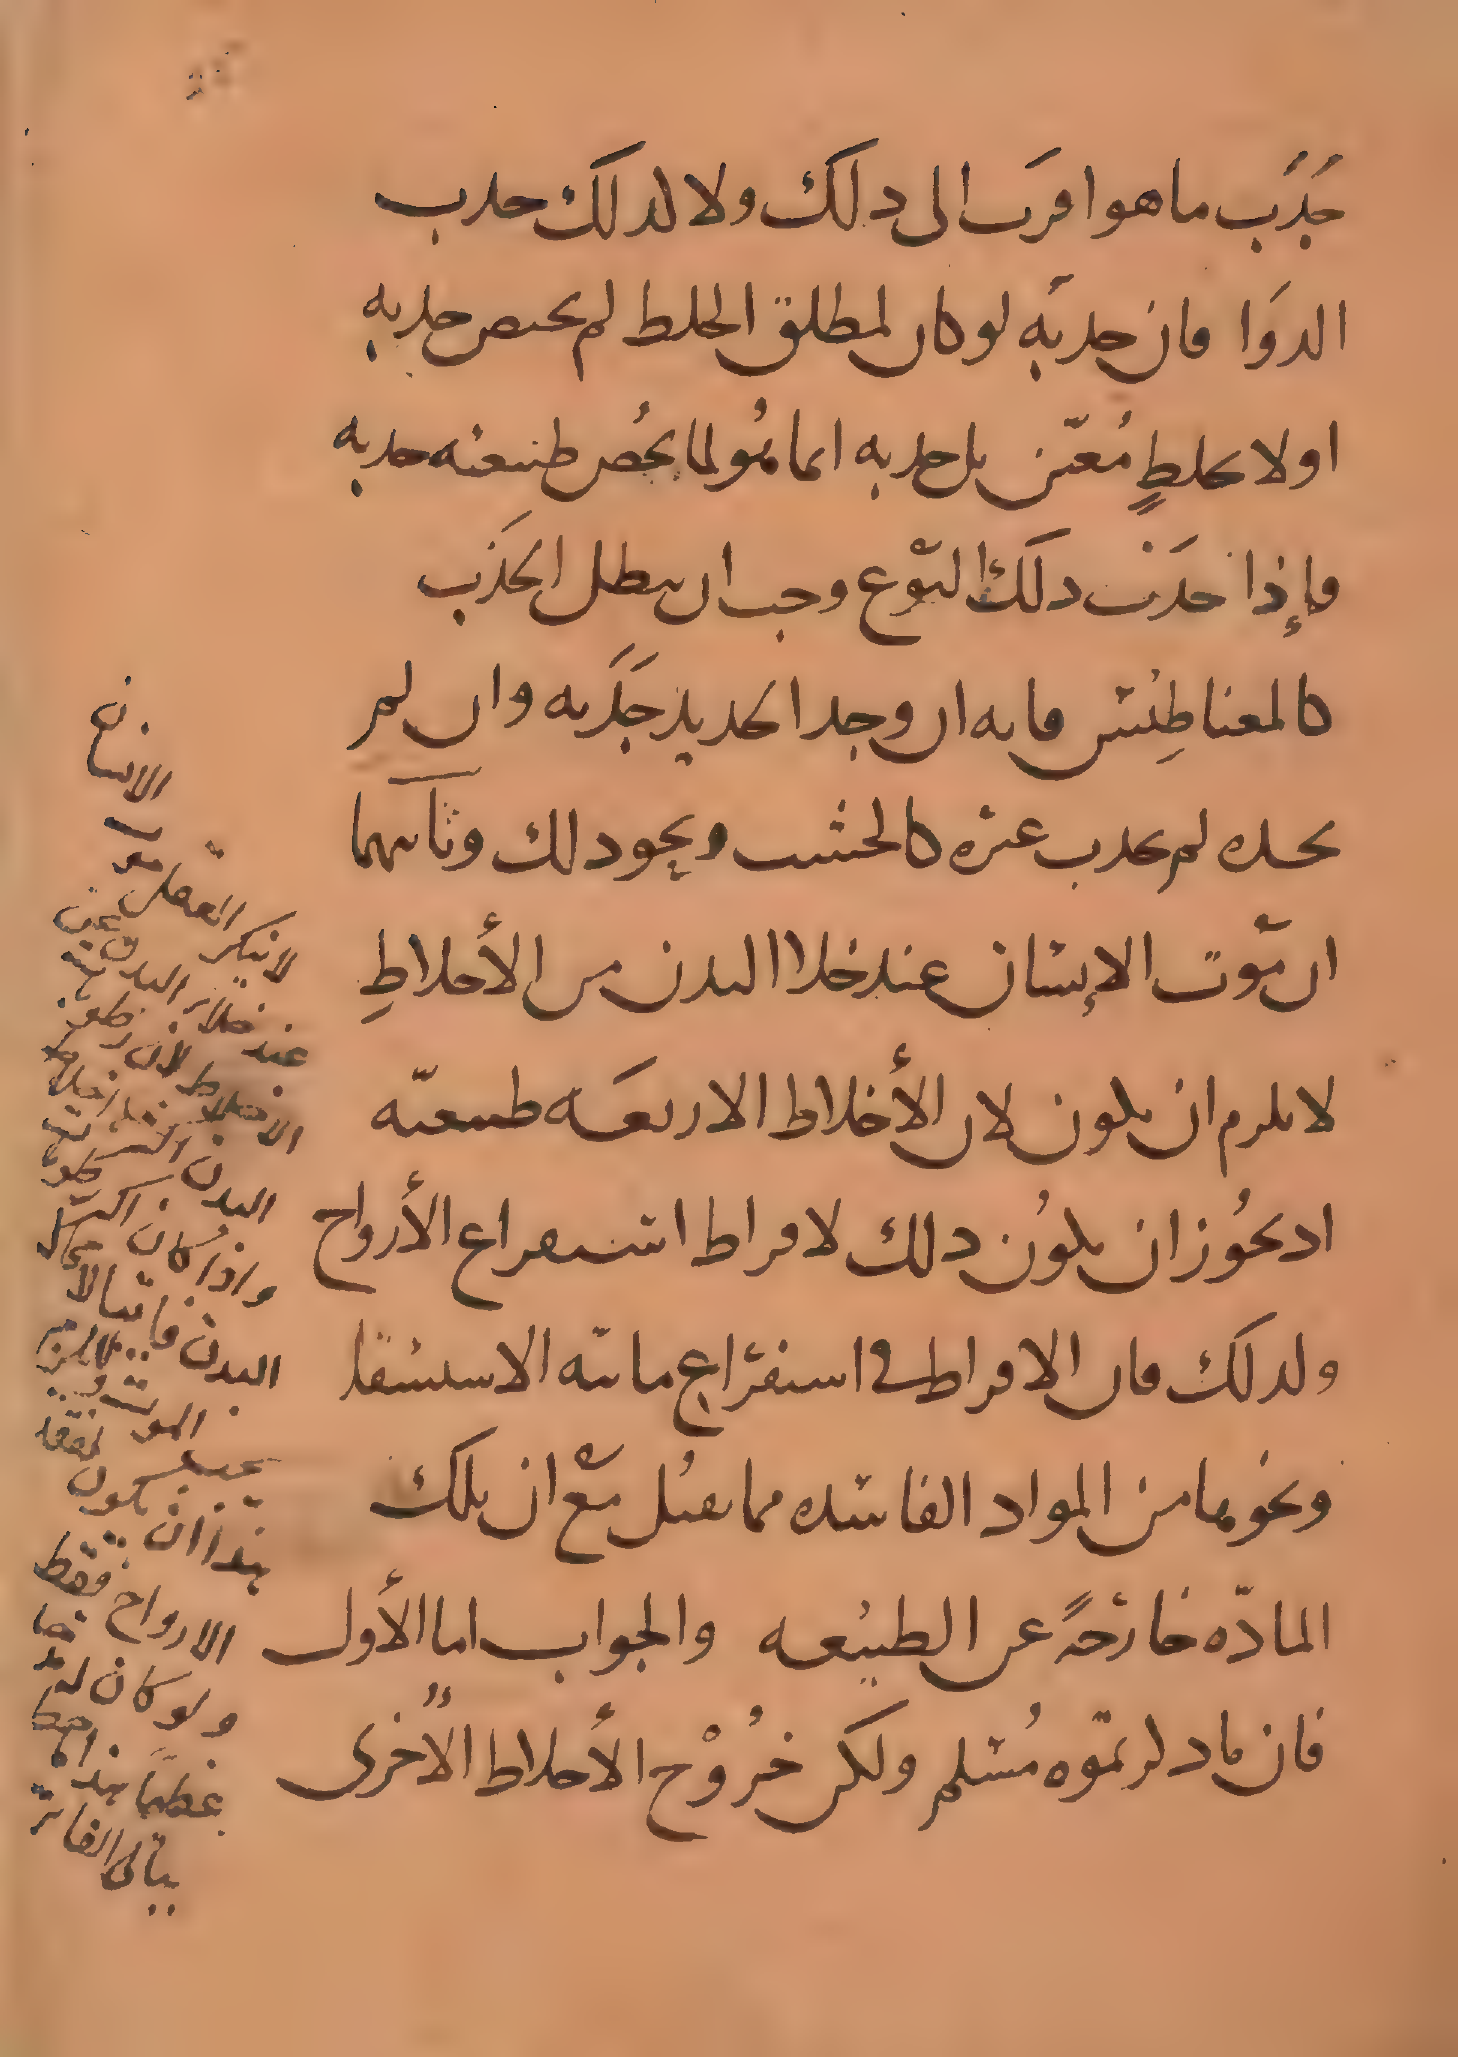 جَذَب ما هو اقرب الى ذلك ولا كذلك جذب
الدوَا فان جذبَه لو كان لمطلق الخلط لم يختص جذبه
اولا بخلطٍ مُعيّن بل جذبه انما هُو لما يخُص طبيعته جذبه
فإذا جذبَ ذلك النّوع وجب ان يبطل الجذَب
كالمغناطِيس فانه ان وجد الحديد جَذَبه وان لم
يجده لم يجذب غيره كالخشب ونحو ذلك وثانيهما
ان مَّوت الإنسان عند خلا البدن من الأخلاطِ
لا يلزم ان يكون لان الأخلاط الاربعَه طبيعيّه
اذ يجُوز ان يكوُن ذلك لافراط استفراغ الأرواح
ولذلك فان الافراط فى استفراغ مائية الاستسقا
ونحوها من المواد الفاسده مما يقتُل مّع ان تلك
المادّه خارجةً عن الطبيُعه والجواب اما الأول
فان ما ذكرتموه مُسلم ولكن خرُوْج الأخلاط الأُخرى
ن
الانسان
موت
لا ينكر العقل
عند خلاء البدن عن
الاخلاط لان
البدن
واذا كان اكثر
البدن
الموت
هذا ان يكون
الارواح فقط
ولو كان